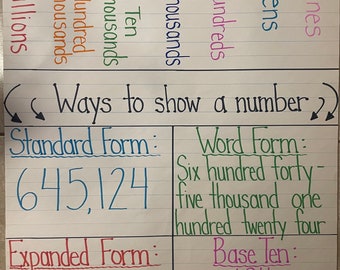 Millions
Hundred Thousands
Ten Thousands
Thousands
Hundreds
Tens
Ones
Ways to show a number
Standard Form:
645,124
Word Form:
Six hundred forty-
five thousand one
hundred twenty four
Expanded Form:
Base Ten: